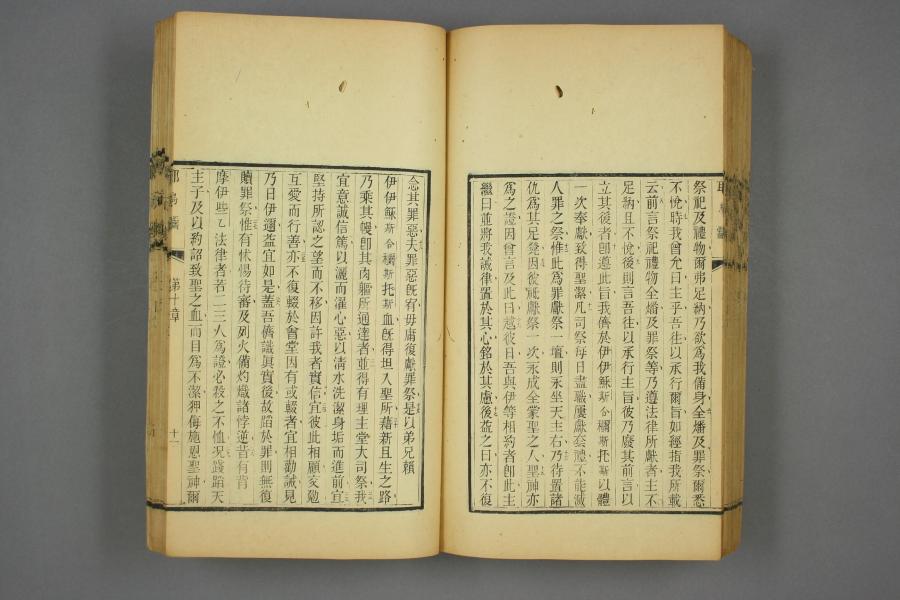 祭祀及禮物爾弗足納乃欲爲我備身全燔及罪祭爾悉
不悅時我曾允曰主乎吾徃以承行爾旨如經指我所載
云前言祭祀禮物全燔及罪祭等乃遵法律所獻者主不
足納且不悅後則言吾徃以承行主旨彼乃廢其前言以
立其後者卽遵此旨我儕於伊伊穌斯合禰斯托斯以體
一次奉獻致得聖潔凡司祭每日盡職屢獻套禮不能滅
人罪之祭惟此爲罪獻祭一壇則永坐天主右乃待置諸
仇爲其足凳因彼祗獻祭一次永成全蒙聖之人聖神亦
爲之證因曾言及此曰越彼日吾與伊等相約者卽此主
繼曰並將我誡律置於其心銘於其慮後益之曰亦不復
念其罪惡夫罪惡旣宥毋庸復獻罪祭是以弟兄賴
伊伊穌斯合禰斯托斯血旣得坦入聖所藉新且生之路
乃乘其幔卽其肉軀所通達者並得有理主堂大司祭我
宜意誠信篤以灑而濯心惡以淸水洗潔身垢而進前宜
堅持所認之望而不移因許我者實信宜彼此相顧亥勉
互愛而行善亦不復輟於會堂因有或輟者宜相勸誡見
乃日伊邇益宜如是蓋吾儕識眞實後故蹈於罪則無復
贖罪祭惟有怵惕待審及列火備灼熾諸悖逆昔有背
摩伊些乙法律者若二三人爲證必殺之不恤况踐蹈天
主子及以約詔致聖之血而目爲不潔狎侮施恩聖神爾
第十章
十一